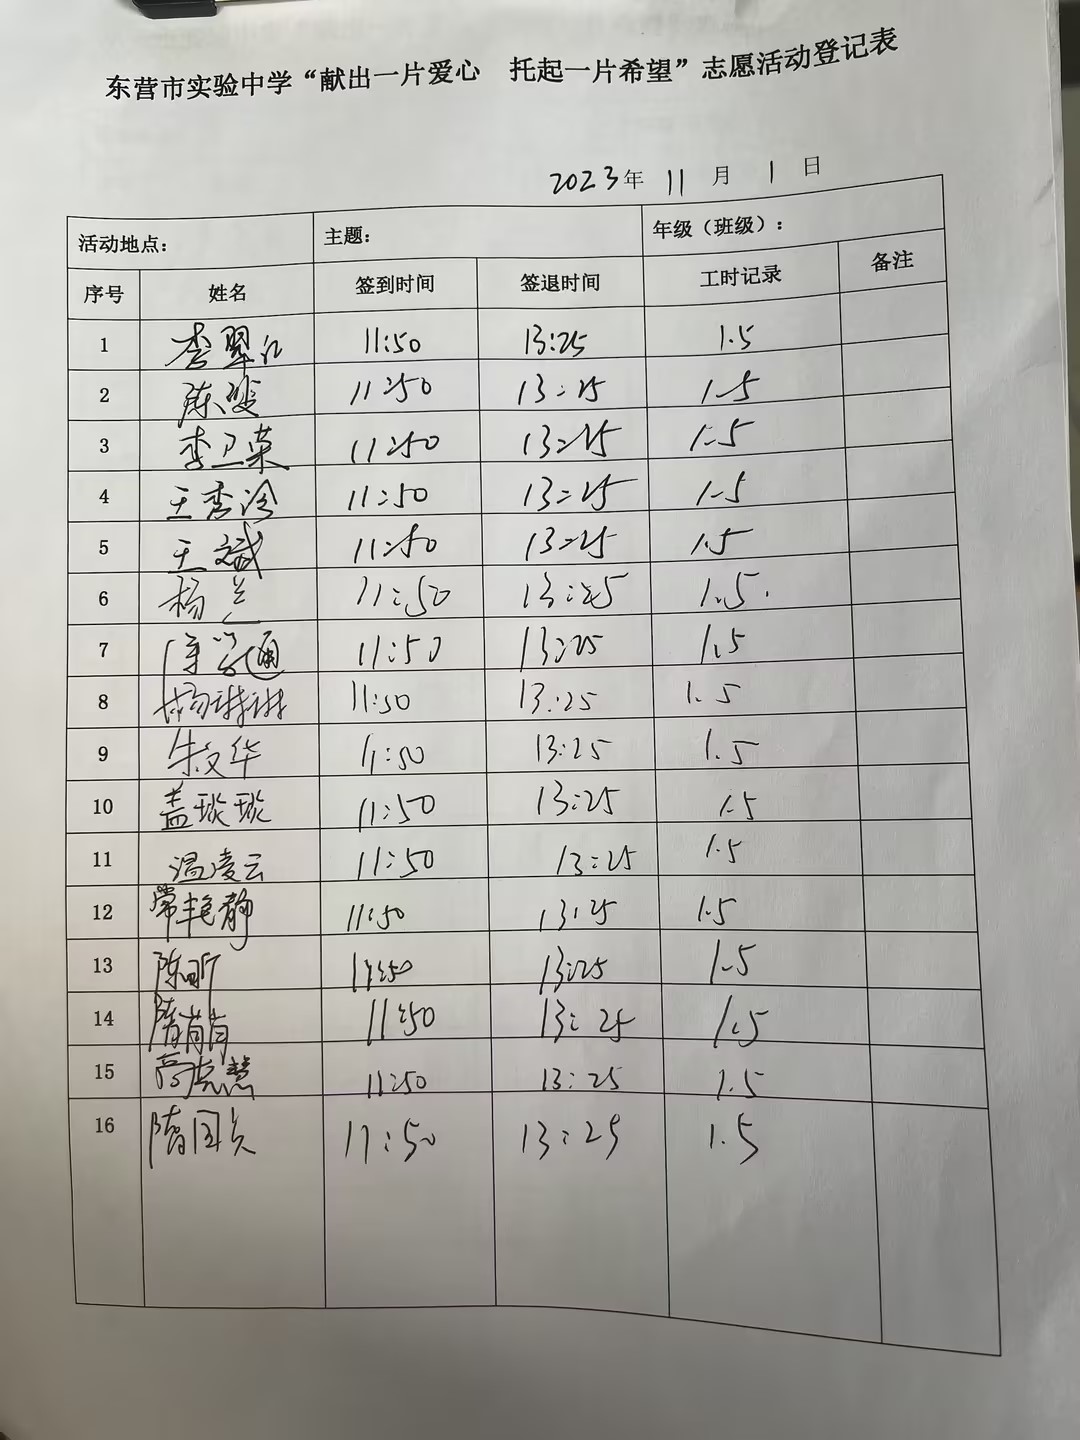 东营市实验中学“献出一片爱心 托起一片希望”志愿活动登记表
2023年 11 月 1 日
活动地点： 主题： 年级（班级）：
序号 姓名 签到时间 签退时间 工时记录 备注
1 李翠红 11:50 13:25 1.5
2 陈斐 11:50 13:25 1.5
3 李卫荣 11:50 13:25 1.5
4 王秀冷 11:50 13:25 1.5
5 王斌 11:50 13:25 1.5
6 杨兰 11:50 13:25 1.5
7 11:50 13:25 1.5
8 杨琳琳 11:50 13:25 1.5
9 朱文华 11:50 13:25 1.5
10 盖琰琰 11:50 13:25 1.5
11 温凌云 11:50 13:25 1.5
12 常艳静 11:50 13:25 1.5
13 陈昕 11:50 13:25 1.5
14 隋萌萌 11:50 13:25 1.5
15 高克慧 11:50 13:25 1.5
16 隋国兵 11:50 13:25 1.5